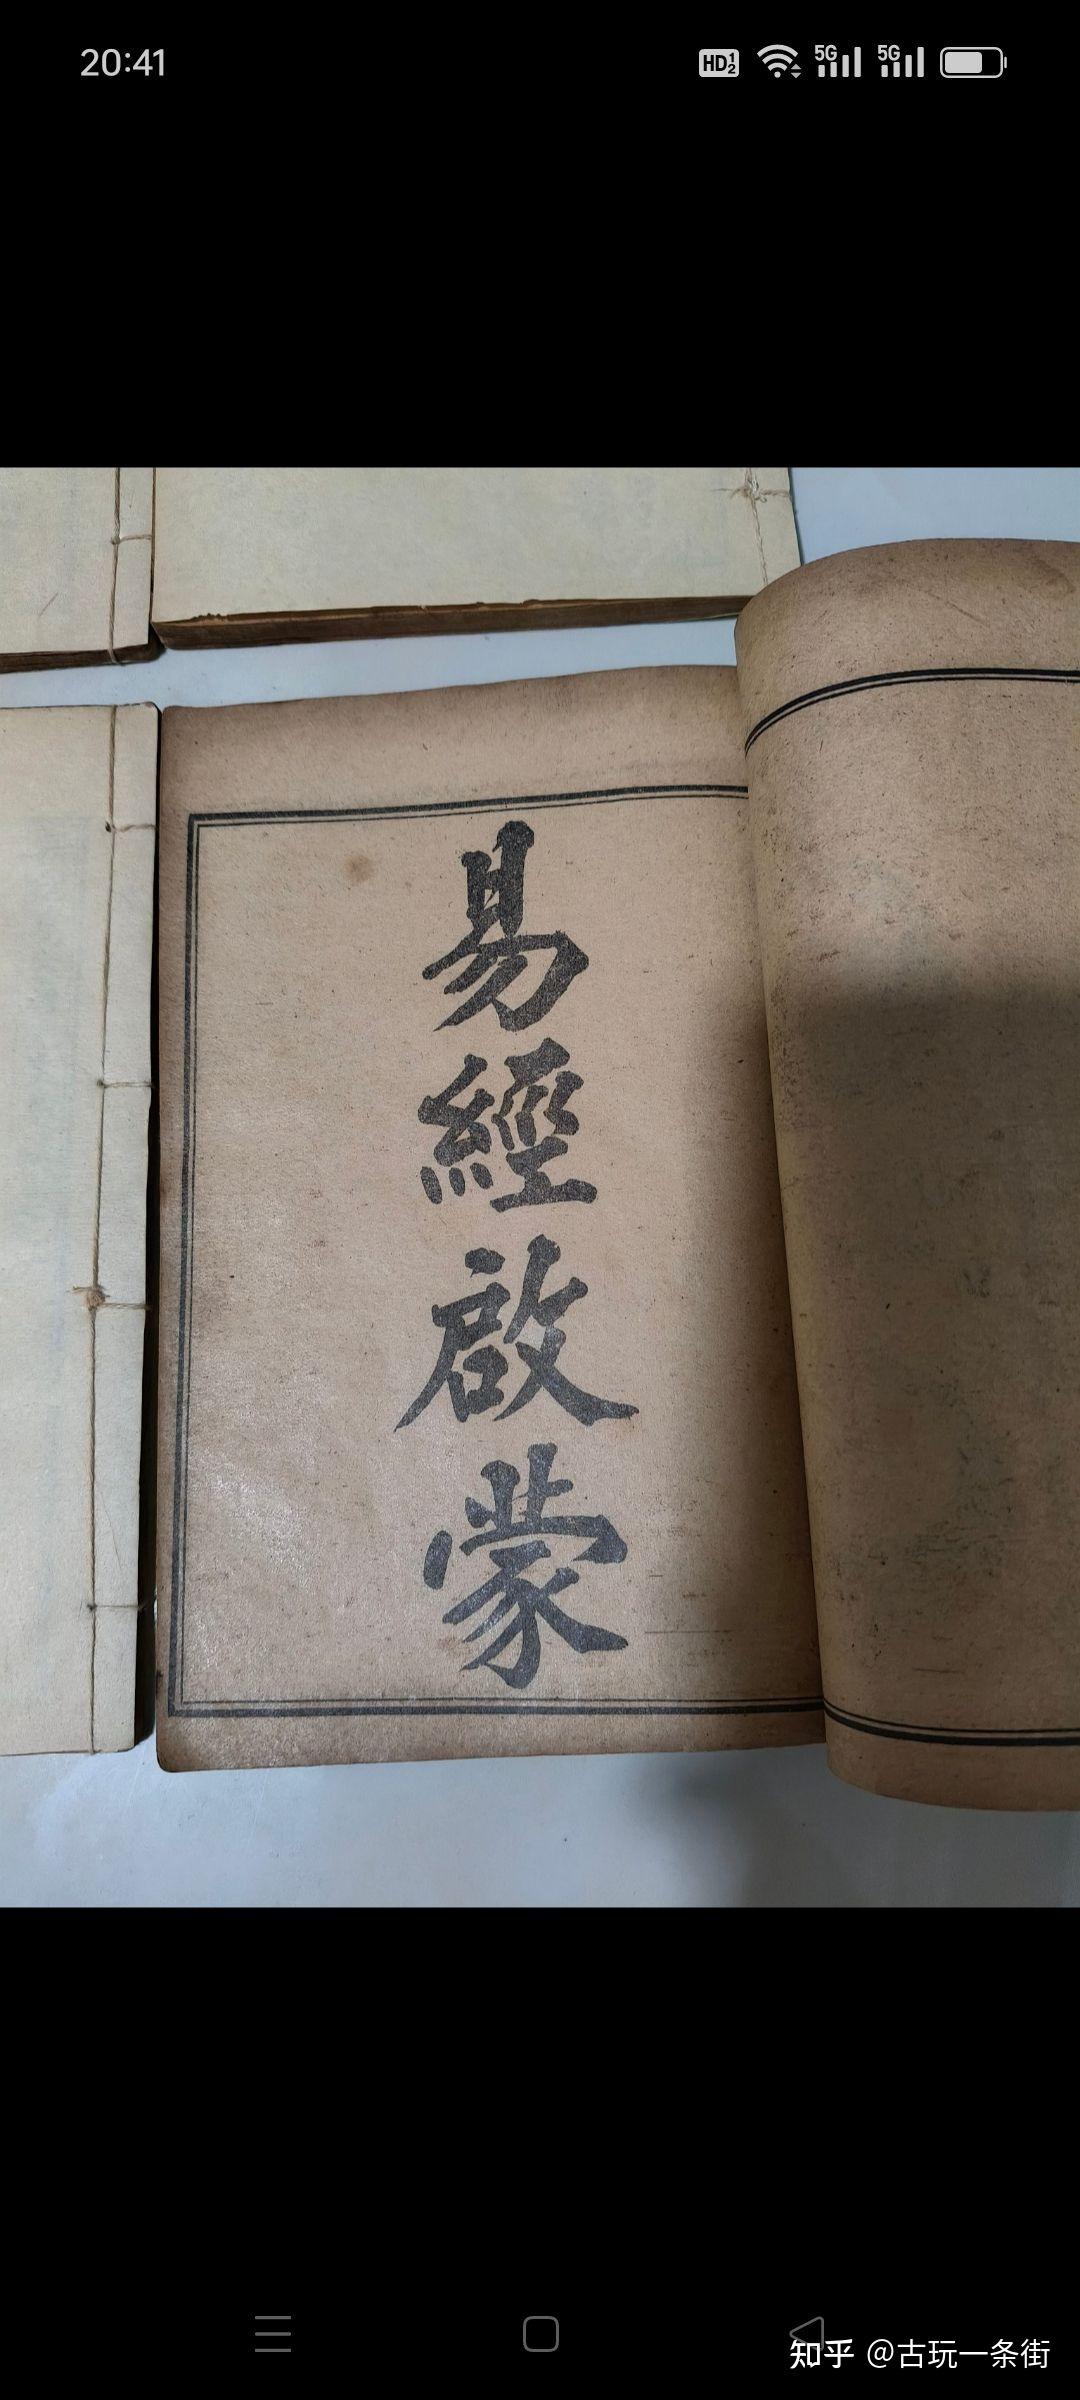 20:41
HD 1 2
5G
5G
易經啟蒙
知乎 @古玩一条街